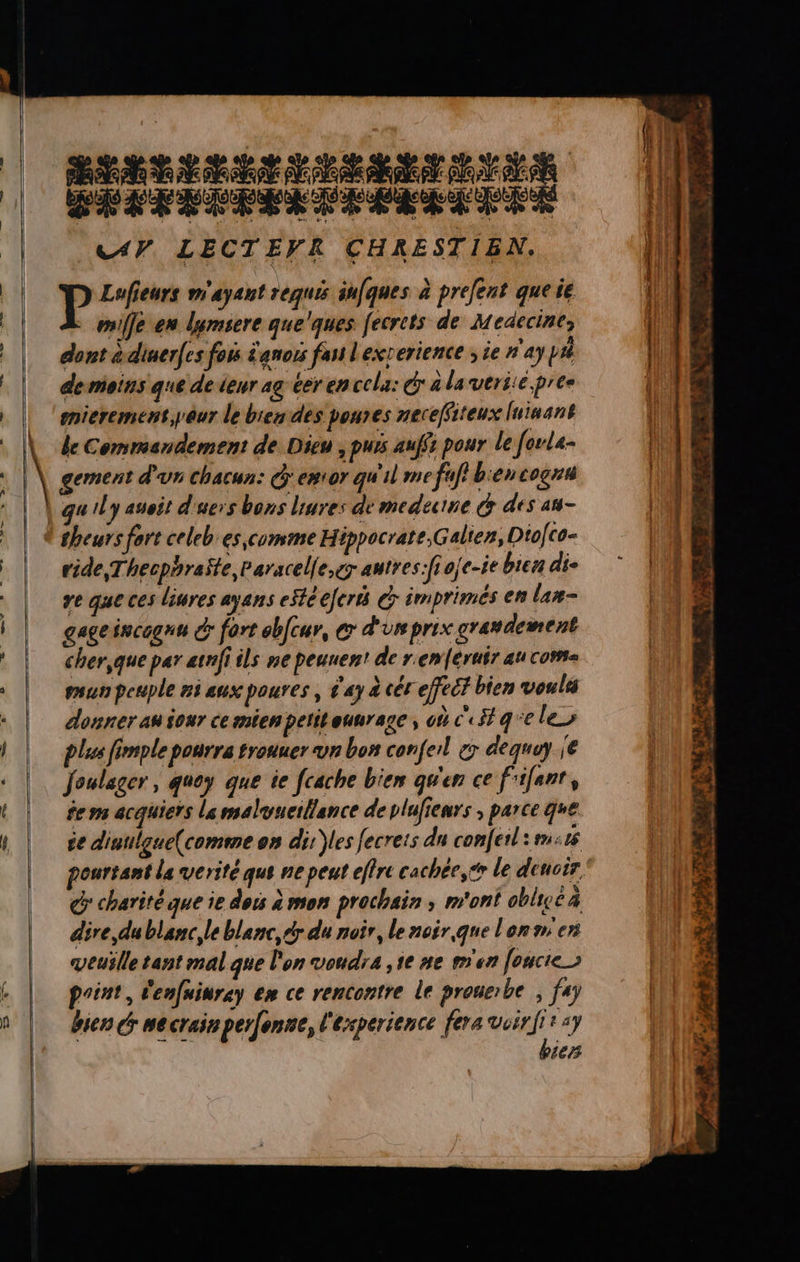 AV LECTEVR CHRESTIEN.
PLusieurs m'ayant requis insques à present que ie
misse en lumiere quelques secrets de Medecine,
dont à diuerses fois i'auois fait l'experience, ie n'ay pû
de moins que de leur ag éer en cela: & à la verité, pre-
mierement, pour le bien des poures necessiteux suiuant
le Commandement de Dieu, puis aussi pour le soula-
gement d'vn chacun: & encor qu'il me fust bien cognu
qu'il y auoit diuers bons liures de medecine & des au-
theurs fort celebres, comme Hippocrate, Galien, Diosco-
ride, Theophraste, Paracelse, & autres: si ose-ie bien di-
re que ces liures ayans esté escrits & imprimés en lan-
gage incognu & fort obscur, & d'vn prix grandement
cher, que par ainsi ils ne peuuent de rien seruir au com-
mun peuple ni aux poures, i'ay à cét effect bien voulu
donner au iour ce mien petit ouurage, où c'est que le
plus simple pourra trouuer vn bon conseil & dequoy se
soulager, quoy que ie scache bien qu'en ce faisant,
ie m acquiers la malvueillance de plusieurs, parce que
ie diuulgue (comme on dit) les secrets du conseil: mais
pourtant la verité qui ne peut estre cachée, & le deuoir
& charité que ie dois à mon prochain, m'ont obligé à
dire, du blanc, le blanc, & du noir, le noir, que l'on m'en
veuille tant mal que l'on voudra, ie ne m'en soucie
point, i'ensuiuray en ce rencontre le prouerbe, fay
bien & ne crain personne, l'experience fera voir si i'ay
bien